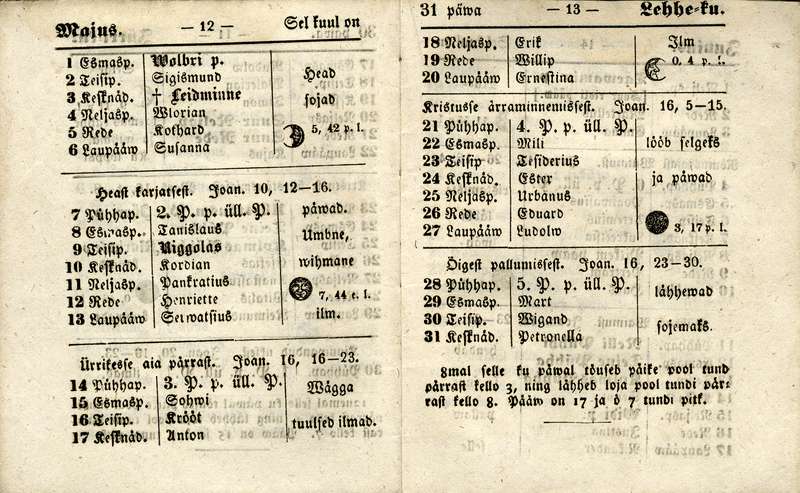 Majus. — 12 — Sel kuul on
1 Esmasp. Wolbri p.
2 Teisip. Sigismund
3 Keſknäd. † Leidminne
4 Neljasp. Wlorian
5 Rede Kothard
6 Laupääw Susanna
Head
ſojad
5, 42 p. l.
Heast karjatseſt. Joan. 10, 12—16.
7 Pühhap. 2. P. p. üll. P.
8 Esmasp. Tanislaus
9 Teisip. Niggolas
10 Keſknäd. Kordian
11 Neljasp. Pankratius
12 Rede Henriette
13 Laupääw Serwatsius
päwad.
Umbne,
wihmane
7, 44 e. l.
ilm.
Ürrikesse aia pärraſt. Joan. 16, 16—23.
14 Pühhap. 3. P. p. üll. P.
15 Esmasp. Sohwi
16 Teisip. Krööt
17 Keſknäd. Anton
Wägga
tuulsed ilmad.
31 päwa — 13 — Lehhe-ku.
18 Neljasp. Erik
19 Rede Willip
20 Laupääw Ernestina
Ilm
0, 4 p. l.
Kristusse ärraminnemisseſt. Joan. 16, 5—15.
21 Pühhap. 4. P. p. üll. P.
22 Esmasp. Mili
23 Teisip Tesiderius
24 Keſknäd. Ester
25 Neljasp. Urbanus
26 Rede Eduard
27 Laupääw Ludolw
lööb selgeks
ja päwad
3, 17 p. l.
Öigest pallumisseſt. Joan. 16, 23—30.
28 Pühhap. 5. P. p. üll. P.
29 Esmasp. Mart
30 Teisip. Wigand
31 Keſknäd. Petronella
lähhewad
ſojemaks.
8mal selle ku päwal töuseb päike pool tund
pärrast kello 3, ning lähheb loja pool tundi pär-
rast kello 8. Pääw on 17 ja ö 7 tundi pitk.